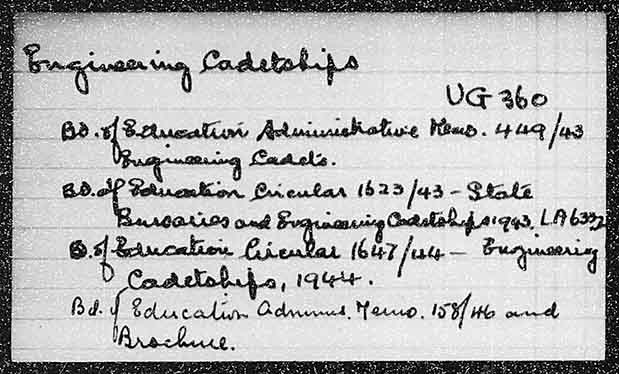 Engineering Cadetships
UG 360
Bd. of Education Administrative Memo. 449/43
Engineering Cadets.
Bd. of Education Circular 1623/43 - State
Bursaries and Engineering Cadetships 1943. LA6332
B. of Education Circular 1647/44 - Engineering
Cadetships, 1944.
Bd. of Education Adminis. Memo. 158/46 and
Brochure.